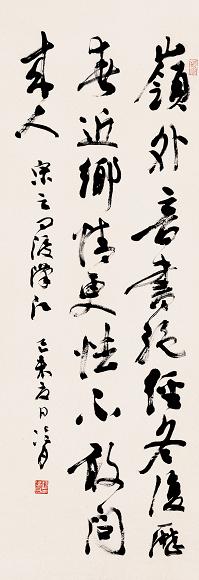 嶺外音書絕經冬復歷
春近鄉情更怯不敢問
來人
宋之問渡漢江 己未夏日